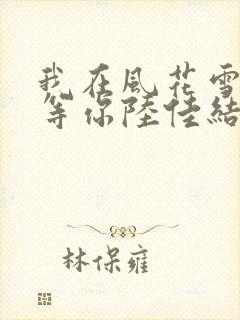 我在風花雪
等你陸佳結
林保雍